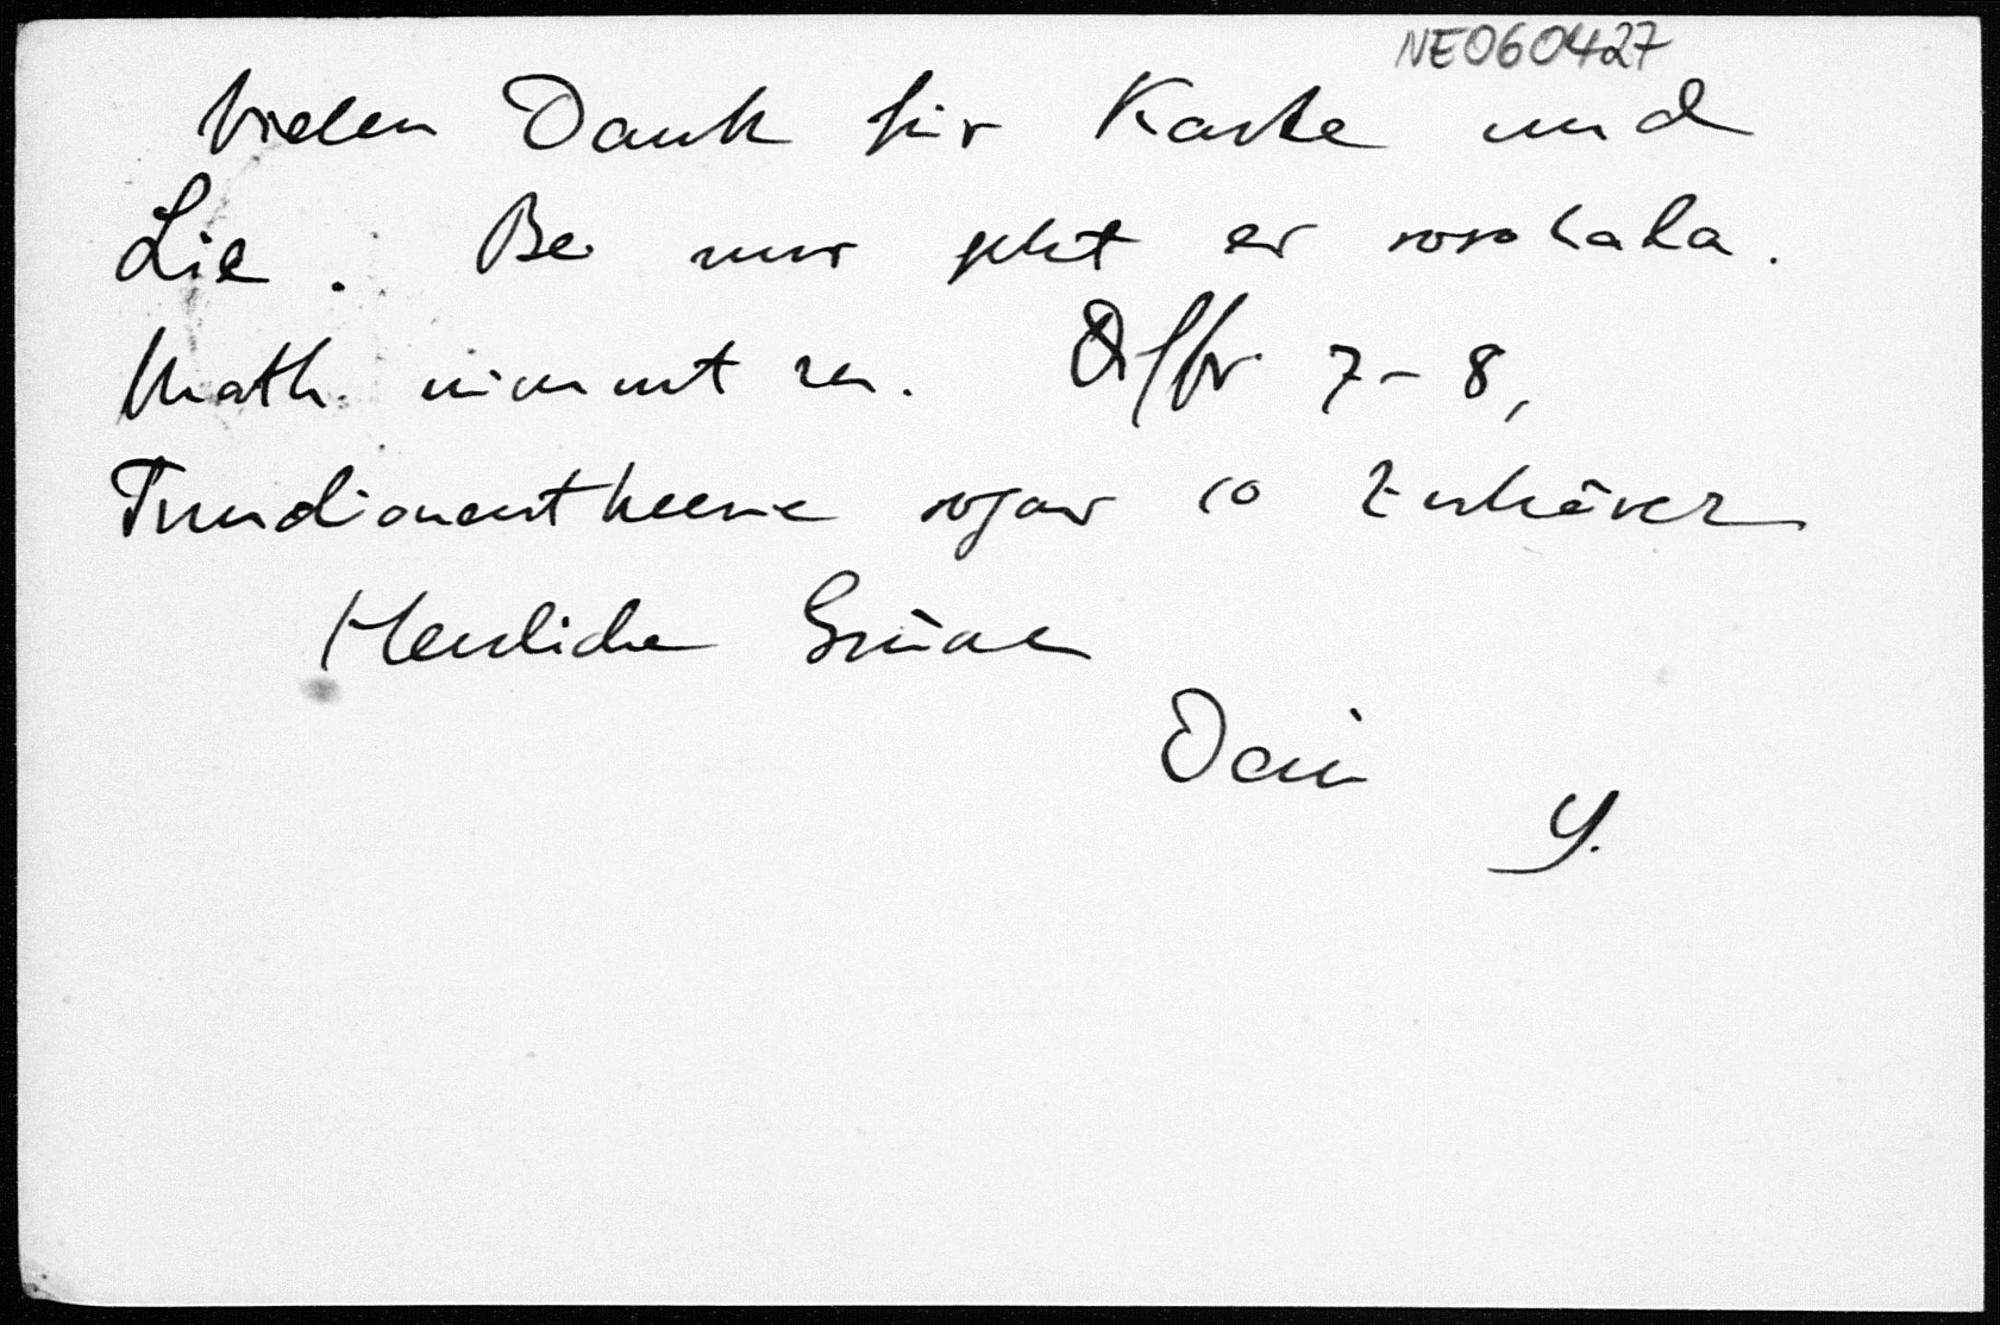 NE060427
Vielen Dank für Karte und
Lie. Bei mir geht es soso lala.
Math. nimmt zu. 7-8,
Funktionentheorie sogar 10 Zuhörer
Herzliche Grüsse
Dein
Y.